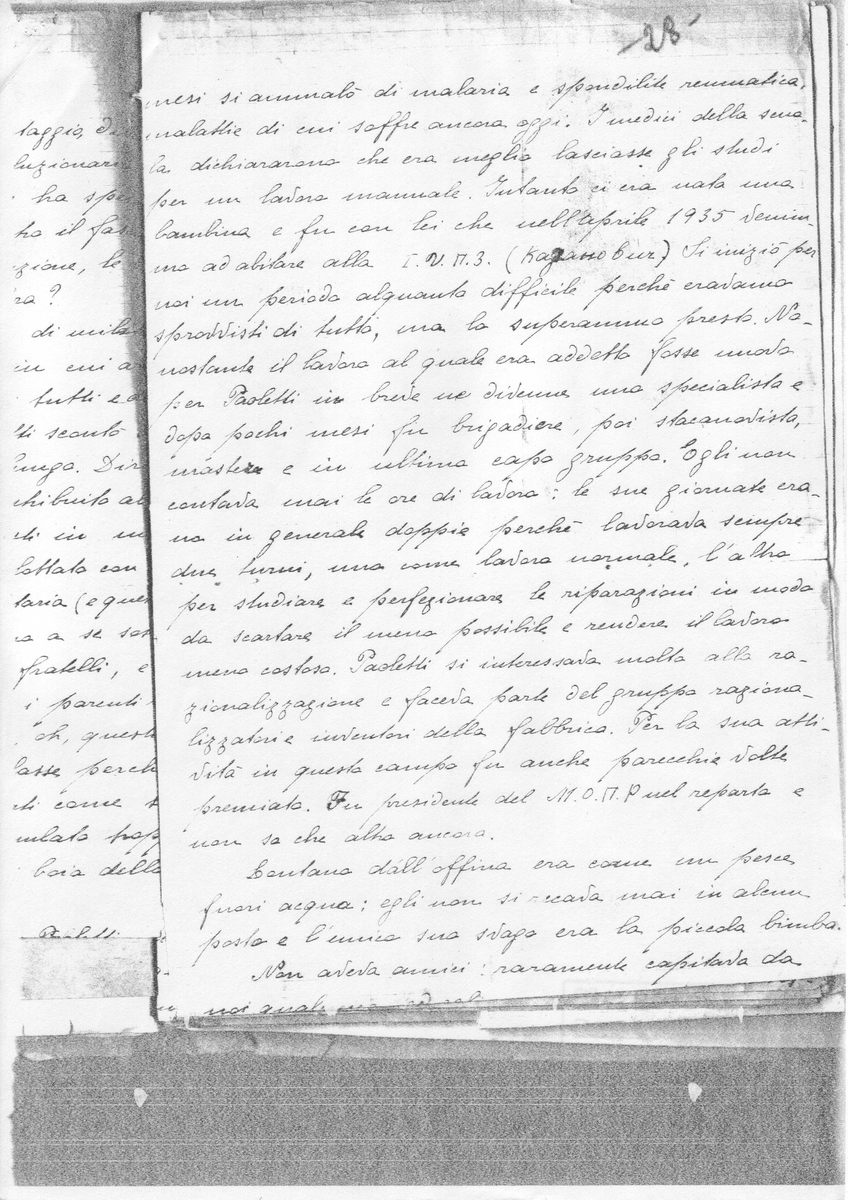 -23-
mesi si ammalò di malaria e spondilite reumatica,
malattie di cui soffre ancora oggi. I medici della scuo-
la dichiararono che era meglio lasciasse gli studi
per un lavoro manuale. Intanto ci era nata una
bambina e fu con lei che nell'aprile 1935 venim-
mo ad abitare alla Г.П.З. () Si iniziò per
noi un periodo alquanto difficile perchè eravamo
sprovvisti di tutto, ma lo superammo presto. No-
nostante il lavoro al quale era addetto fosse nuovo
per Paoletti in breve ne divenne uno specialista e
dopo pochi mesi fu brigadiere, poi stacanovista,
e in ultimo capo gruppo. Egli non
contava mai le ore di lavoro: le sue giornate era-
no in generale doppie perchè lavorava sempre
due turni, uno come lavoro normale, l'altro
per studiare e perfezionare le riparazioni in modo
da scartare il meno possibile e rendere il lavoro
meno costoso. Paoletti si interessava molto alla ra-
zionalizzazione e faceva parte del gruppo raziona-
lizzatori e inventori della fabbrica. Per la sua atti-
vità in questo campo fu anche parecchie volte
premiato. Fu presidente del М.О.П.Р nel reparto e
non so che altro ancora.
Lontano dall'offina era come un pesce
fuori acqua; egli non si recava mai in alcun
posto e l'unico suo svago era la piccola bimba.
Non aveva amici: raramente capitava da
noi
taggio,
ha
ha il
zione, le
ra?
in cui
tutti e
ti scontò
lottato con
taria (e
a se
fratelli, e
i parenti
come
boia della